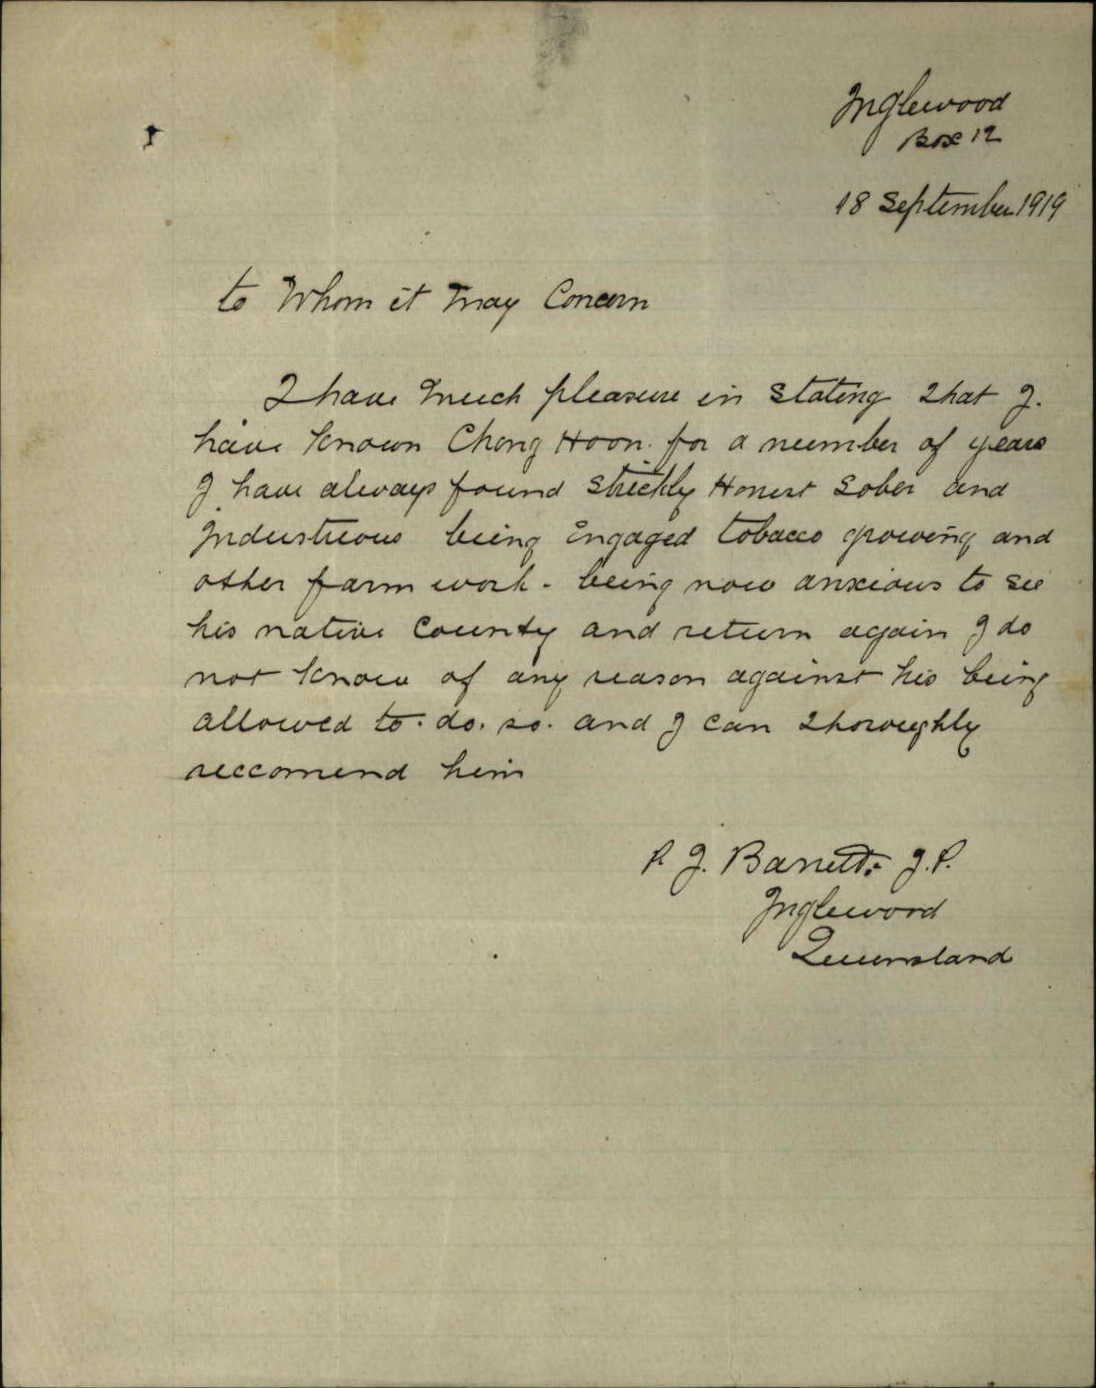 Inglewood
Box 12
18 September 1919
to Whom it May Concern
I have Much pleasure in Stating that I.
have Known Chong Hoon. for a number of years
I have always found Strickly Honest Sober and
Industrious being Engaged tobacco growing and
other farm work - being now anxious to see
his native County and return again I do
not Know of any reason against his being
allowed to. do. so. and I can thoroughly
reccomend him
P. J. Barrett. J.P.
Inglewood
Queensland